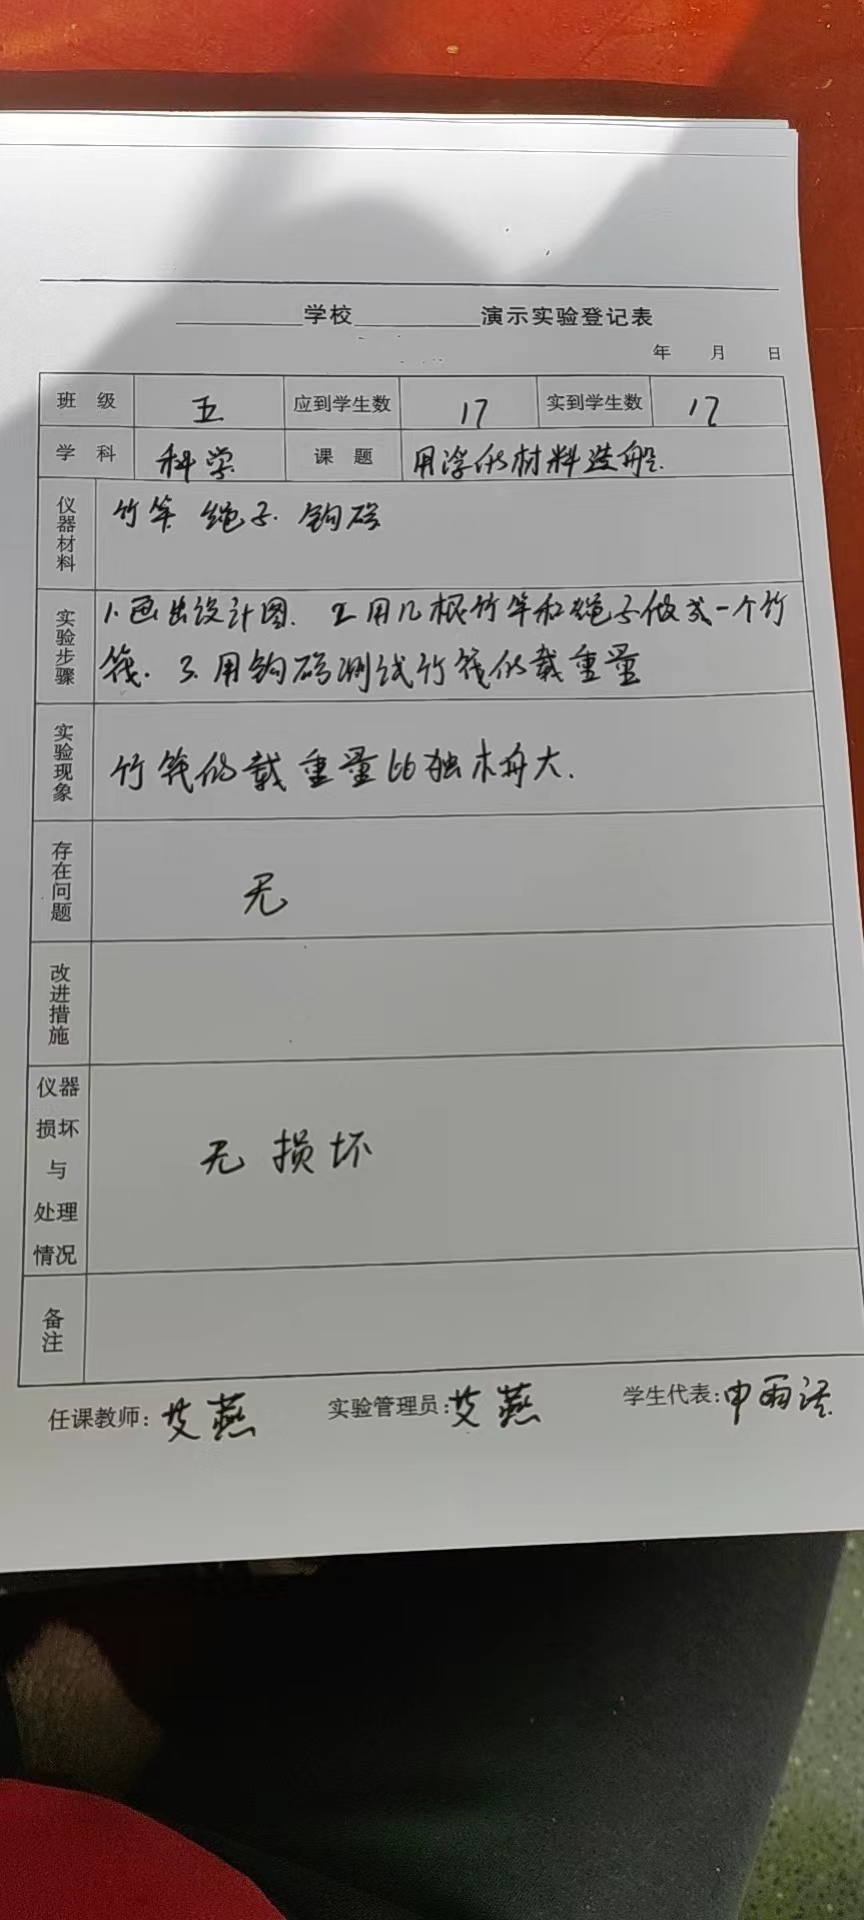 学校 演示实验登记表
年 月 日
班级 五 应到学生数 17 实到学生数 17
学科 科学 课题 用浮的材料造船.
仪器材料 竹竿 绳子 钩码
实验步骤 1.画出设计图. 2.用几根竹竿和绳子做成一个竹
筏. 3.用钩码测试竹筏的载重量
实验现象 竹筏的载重量比独木舟大.
存在问题 无
改进措施
仪器损坏与处理情况 无损坏
备注
任课教师:艾燕 实验管理员:艾燕 学生代表:申雨